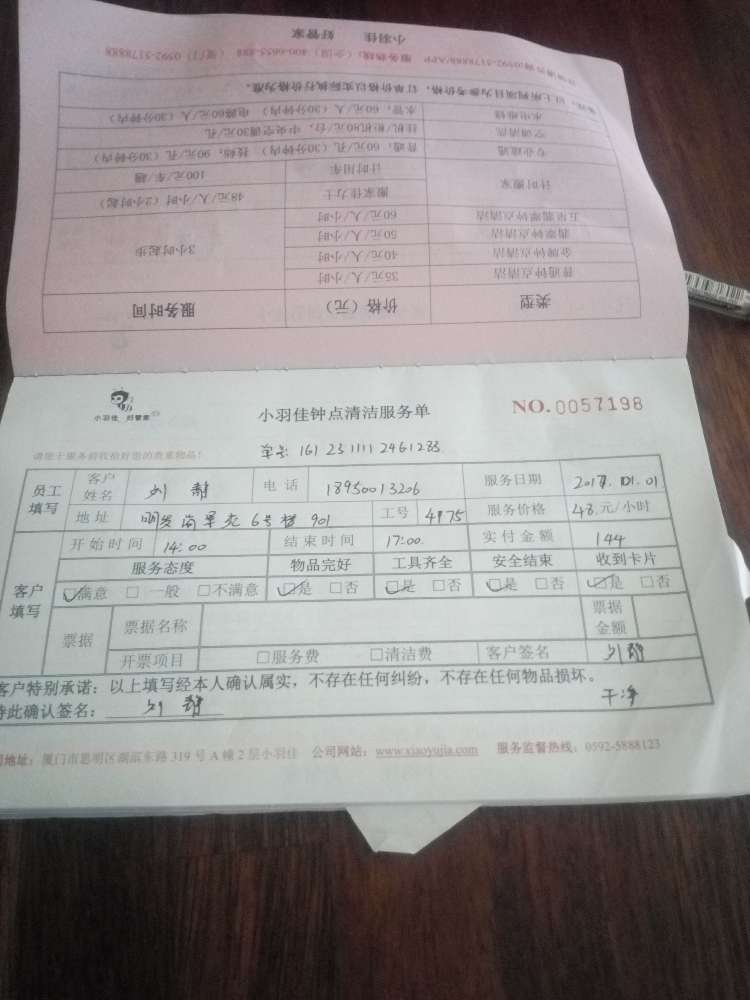 小羽佳 好管家
服务热线：（全国）400-6655-888 （厦门）0592-5178888
备注：以上所列项目为参考价格，订单价格以实际执行价格为准。
类型 价格（元） 服务时间
普通钟点清洁 35元/人/小时 3小时起步
金牌钟点清洁 40元/人/小时
翡翠钟点清洁 50元/人/小时
五星翡翠钟点清洁 60元/人/小时
计时搬家 搬家佳力士 48元/人/小时（2小时起）
计时用车 100元/车/趟
专业疏通 普通：60元/孔（30分钟内） 技端：90元/孔（30分钟内）
空调清洗 挂机/柜机80元/台，中央空调30元/孔
水电维修 水管：60元/人（30分钟内） 电路60元/人（30分钟内）
小羽佳 好管家
小羽佳钟点清洁服务单
NO.0057198
请您于服务前收拾好您的贵重物品！
单号：1612311112461233
员工填写 客户姓名 刘静 电话 18950013206 服务日期 2017.01.01
地址 6号楼901 工号 4975 服务价格 48元/小时
客户填写 开始时间 14:00 结束时间 17:00 实付金额 144
服务态度 物品完好 工具齐全 安全结束 收到卡片
☑满意 □一般 □不满意 ☑是 □否 ☑是 □否 ☑是 □否 ☑是 □否
票据 票据名称 票据金额
开票项目 □服务费 □清洁费 客户签名 刘静
客户特别承诺：以上填写经本人确认属实，不存在任何纠纷，不存在任何物品损坏。
特此确认签名：刘静 干净
地址：厦门市思明区湖滨东路319号A幢2层小羽佳 公司网站：www.xiaoyujia.com 服务监督热线：0592-5888123